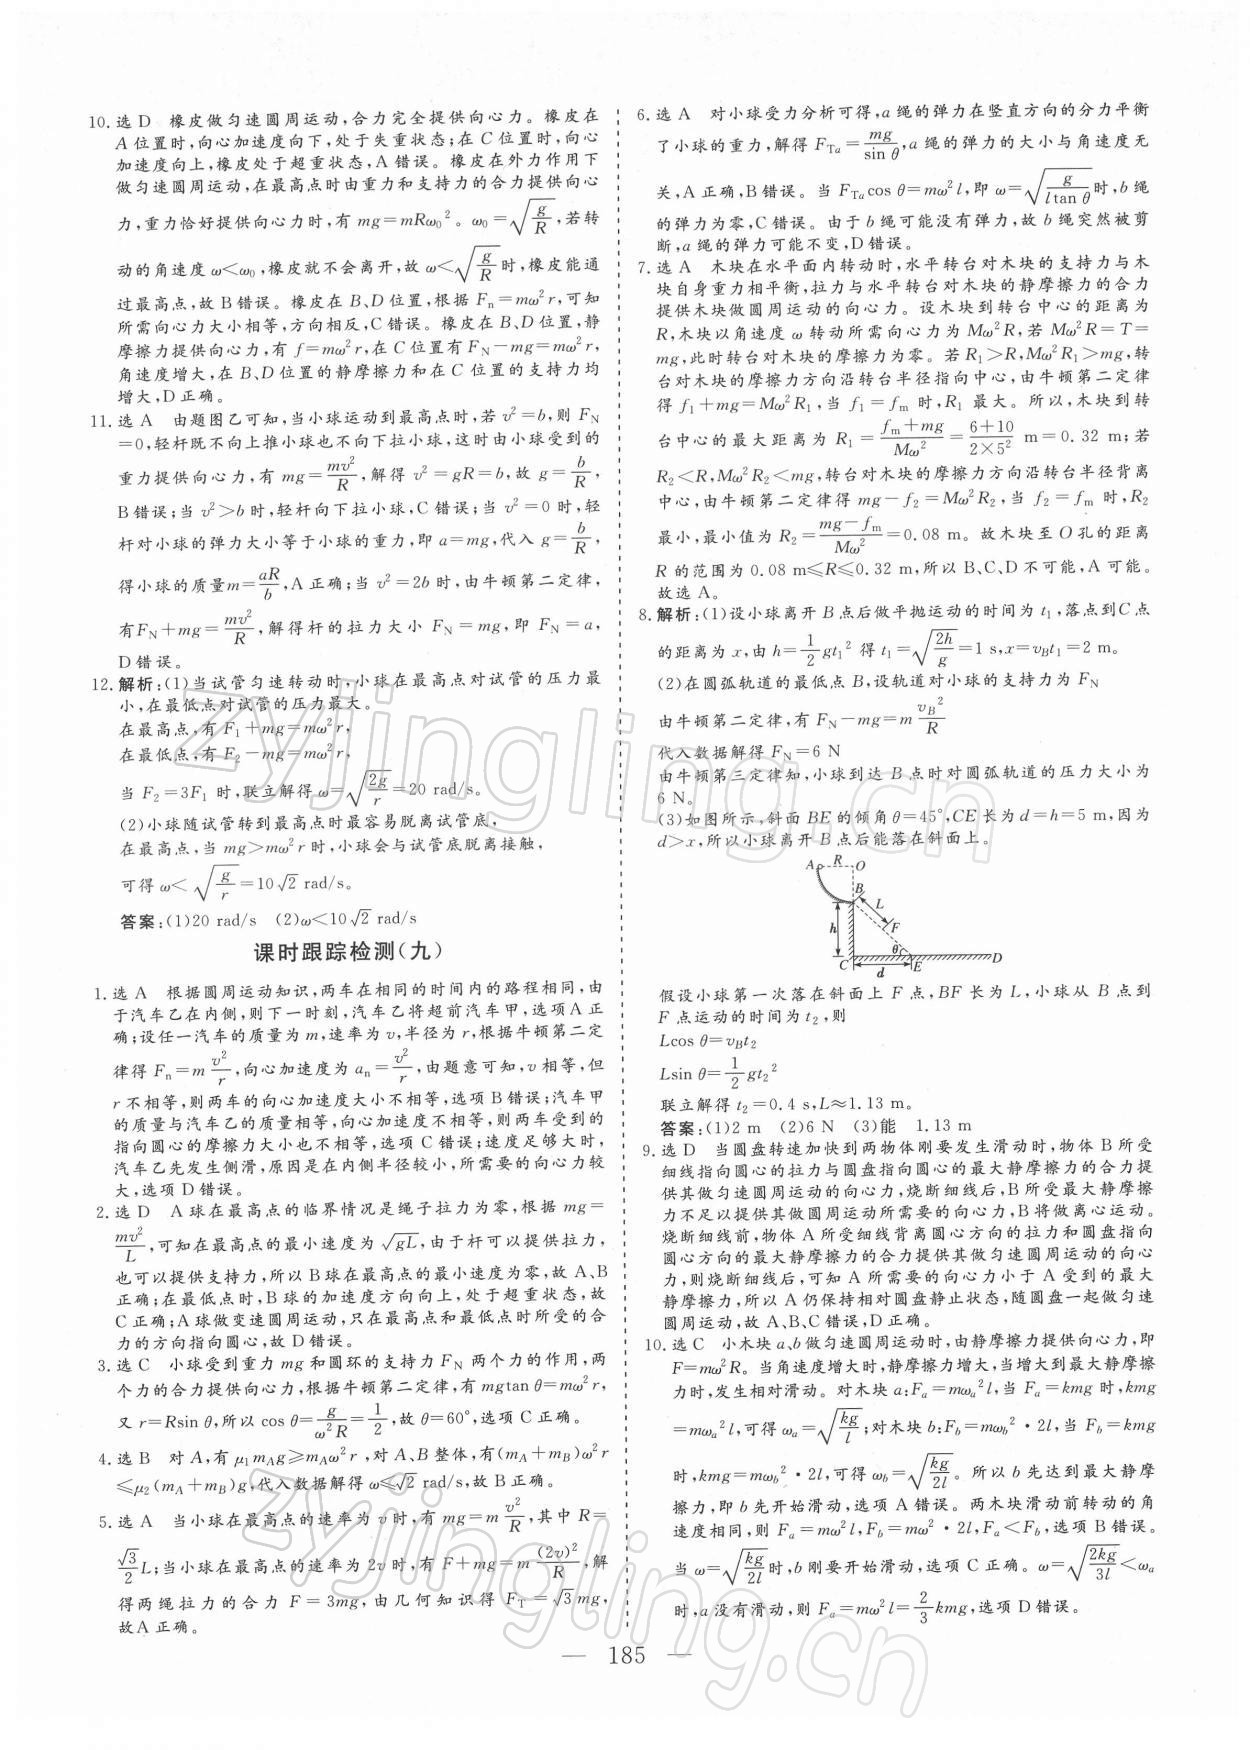 10. 选 D　橡皮做匀速圆周运动,合力完全提供向心力。橡皮在
A 位置时,向心加速度向下,处于失重状态;在 C 位置时,向心
加速度向上,橡皮处于超重状态,A 错误。橡皮在外力作用下
做匀速圆周运动,在最高点时由重力和支持力的合力提供向心
力,重力恰好提供向心力时,有 mg=mRω₀²。ω₀=√(g/R),若转
动的角速度 ω<ω₀,橡皮就不会离开,故 ω<√(g/R)时,橡皮能通
过最高点,故 B 错误。橡皮在 B、D 位置,根据 Fₙ=mω²r,可知
所需向心力大小相等,方向相反,C 错误。橡皮在 B、D 位置,静
摩擦力提供向心力,有 f=mω²r,在 C 位置有 F_N-mg=mω²r,
角速度增大,在 B、D 位置的静摩擦力和在 C 位置的支持力均
增大,D 正确。
11. 选 A　由题图乙可知,当小球运动到最高点时,若 v²=b,则 F_N
=0,轻杆既不向上推小球也不向下拉小球,这时由小球受到的
重力提供向心力,有 mg=mv²/R,解得 v²=gR=b,故 g=b/R,
B 错误;当 v²>b 时,轻杆向下拉小球,C 错误;当 v²=0 时,轻
杆对小球的弹力大小等于小球的重力,即 a=mg,代入 g=b/R,
得小球的质量m=aR/b,A 正确;当 v²=2b 时,由牛顿第二定律,
有F_N+mg=mv²/R,解得杆的拉力大小 F_N=mg,即 F_N=a,
D 错误。
12. 解析:(1)当试管匀速转动时,小球在最高点对试管的压力最
小,在最低点对试管的压力最大。
在最高点,有 F₁+mg=mω²r,
在最低点,有 F₂-mg=mω²r,
当 F₂=3F₁ 时,联立解得 ω=√(2g/r)=20 rad/s。
(2)小球随试管转到最高点时最容易脱离试管底,
在最高点,当 mg>mω²r 时,小球会与试管底脱离接触,
可得 ω<√(g/r)=10√2 rad/s。
答案:(1)20 rad/s　(2)ω<10√2 rad/s
课时跟踪检测(九)
1. 选 A　根据圆周运动知识,两车在相同的时间内的路程相同,由
于汽车乙在内侧,则下一时刻,汽车乙将超前汽车甲,选项A 正
确;设任一汽车的质量为 m,速率为 v,半径为 r,根据牛顿第二定
律得 Fₙ=m v²/r,向心加速度为 aₙ=v²/r,由题意可知,v 相等,但
r 不相等,则两车的向心加速度大小不相等,选项 B错误;汽车甲
的质量与汽车乙的质量相等,向心加速度不相等,则两车受到的
指向圆心的摩擦力大小也不相等,选项 C 错误;速度足够大时,
汽车乙先发生侧滑,原因是在内侧半径较小,所需要的向心力较
大,选项 D错误。
2. 选 D　A 球在最高点的临界情况是绳子拉力为零,根据 mg=
mv²/L,可知在最高点的最小速度为 √(gL),由于杆可以提供拉力,
也可以提供支持力,所以 B球在最高点的最小速度为零,故 A、B
正确;在最低点时,B球的加速度方向向上,处于超重状态,故
C正确;A球做变速圆周运动,只在最高点和最低点时所受的合
力的方向指向圆心,故 D错误。
3. 选 C　小球受到重力 mg 和圆环的支持力 F_N 两个力的作用,两
个力的合力提供向心力,根据牛顿第二定律,有 mgtan θ=mω²r,
又 r=Rsin θ,所以 cos θ=g/(ω²R)=1/2,故 θ=60°,选项 C 正确。
4. 选 B　对 A,有 μ₁m_Ag≥m_Aω²r,对 A、B 整体,有(m_A+m_B)ω²r
≤μ₂(m_A+m_B)g,代入数据解得 ω≤√2 rad/s,故 B 正确。
5. 选 A　当小球在最高点的速率为 v时,有 mg=m v²/R,其中 R=
√3/2 L;当小球在最高点的速率为 2v 时,有 F+mg=m (2v)²/R,解
得两绳拉力的合力 F=3mg,由几何知识得 F_T=√3mg,
故A 正确。
6. 选 A　对小球受力分析可得,a 绳的弹力在竖直方向的分力平衡
了小球的重力,解得 F_Ta=mg/sin θ,a 绳的弹力的大小与角速度无
关,A 正确,B 错误。当 F_Ta cos θ=mω²l,即 ω=√(g/(l tan θ))时,b 绳
的弹力为零,C 错误。由于 b 绳可能没有弹力,故 b 绳突然被剪
断,a 绳的弹力可能不变,D 错误。
7. 选 A　木块在水平面内转动时,水平转台对木块的支持力与木
块自身重力相平衡,拉力与水平转台对木块的静摩擦力的合力
提供木块做圆周运动的向心力。设木块到转台中心的距离为
R,木块以角速度 ω 转动所需向心力为 Mω²R,若 Mω²R=T=
mg,此时转台对木块的摩擦力为零。若 R₁>R,Mω²R₁>mg,转
台对木块的摩擦力方向沿转台半径指向中心,由牛顿第二定律
得 f₁+mg=Mω²R₁,当 f₁=f_m 时,R₁ 最大。所以,木块到转
台中心的最大距离为 R₁=(f_m+mg)/(Mω²)=(6+10)/(2×5²) m=0.32 m;若
R₂<R,Mω²R₂<mg,转台对木块的摩擦力方向沿转台半径背离
中心,由牛顿第二定律得 mg-f₂=Mω²R₂,当 f₂=f_m 时,R₂
最小,最小值为 R₂=(mg-f_m)/(Mω²)=0.08 m。故木块至 O孔的距离
R 的范围为 0.08 m≤R≤0.32 m,所以 B、C、D 不可能,A 可能。
故选 A。
8. 解析:(1)设小球离开 B 点后做平抛运动的时间为 t₁,落点到C点
的距离为 x,由 h=1/2 gt₁² 得 t₁=√(2h/g)=1 s,x=v_Bt₁=2 m。
(2)在圆弧轨道的最低点 B,设轨道对小球的支持力为 F_N
由牛顿第二定律,有 F_N-mg=m v_B²/R
代入数据解得 F_N=6 N
由牛顿第三定律知,小球到达 B 点时对圆弧轨道的压力大小为
6 N。
(3)如图所示,斜面 BE 的倾角 θ=45°,CE 长为 d=h=5 m,因为
d>x,所以小球离开 B 点后能落在斜面上。
A R O
B
L
h F
θ
C E D
d
假设小球第一次落在斜面上 F 点,BF 长为 L,小球从 B 点到
F 点运动的时间为 t₂,则
Lcos θ=v_Bt₂
Lsin θ=1/2 gt₂²
联立解得 t₂=0.4 s,L≈1.13 m。
答案:(1)2 m　(2)6 N　(3)能　1.13 m
9. 选 D　当圆盘转速加快到两物体刚要发生滑动时,物体 B 所受
细线指向圆心的拉力与圆盘指向圆心的最大静摩擦力的合力提
供其做匀速圆周运动的向心力,烧断细线后,B所受最大静摩擦
力不足以提供其做圆周运动所需要的向心力,B将做离心运动。
烧断细线前,物体 A 所受细线背离圆心方向的拉力和圆盘指向
圆心方向的最大静摩擦力的合力提供其做匀速圆周运动的向心
力,则烧断细线后,可知 A 所需要的向心力小于 A 受到的最大
静摩擦力,所以 A 仍保持相对圆盘静止状态,随圆盘一起做匀速
圆周运动,故 A、B、C 错误,D 正确。
10. 选 C　小木块 a、b 做匀速圆周运动时,由静摩擦力提供向心力,即
F=mω²R。当角速度增大时,静摩擦力增大,当增大到最大静摩擦
力时,发生相对滑动。对木块 a:F_a=mω_a²l,当 F_a=kmg 时,kmg
=mω_a²l,可得 ω_a=√(kg/l);对木块 b:F_b=mω_b²·2l,当 F_b=kmg
时,kmg=mω_b²·2l,可得 ω_b=√(kg/2l)。所以 b 先达到最大静摩
擦力,即 b 先开始滑动,选项 A 错误。两木块滑动前转动的角
速度相同,则 F_a=mω²l,F_b=mω²·2l,F_a<F_b,选项 B 错误。
当 ω=√(kg/2l)时,b 刚要开始滑动,选项 C 正确。ω=√(2kg/3l)<ω_a
时,a 没有滑动,则 F_a=mω²l=2/3 kmg,选项 D 错误。
— 185 —
zyjingling.com
zyjingling.cn